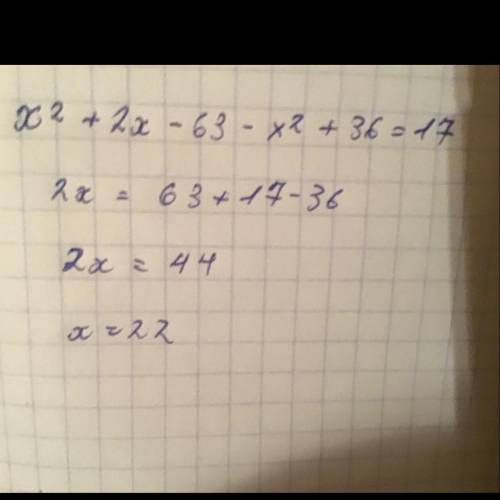 x² + 2x - 63 - x² + 36 = 17
2x = 63 + 17 - 36
2x = 44
x = 22